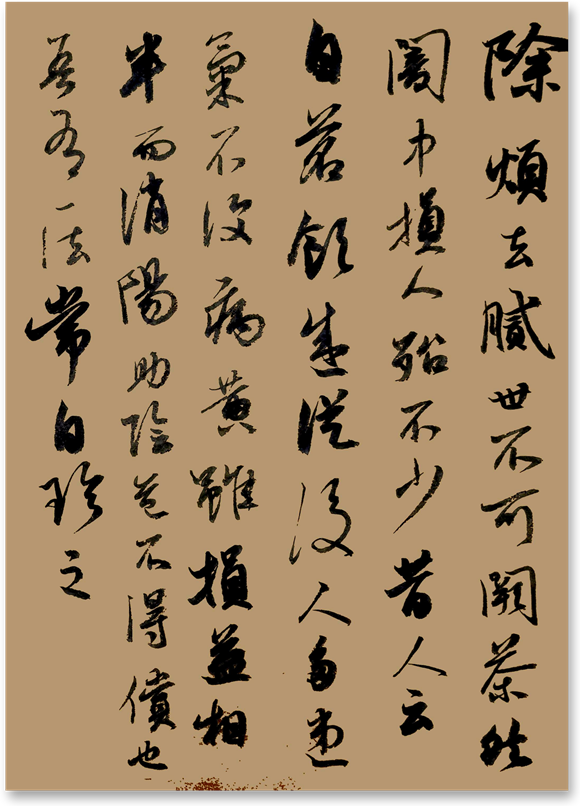 除煩去膩世不可闕茶然
闇中損人殆不少昔人云
自茗飲盛後人多患
氣不復病黃雖損益相
半而消陽助陰益不得償也
吾有一法常自珍之